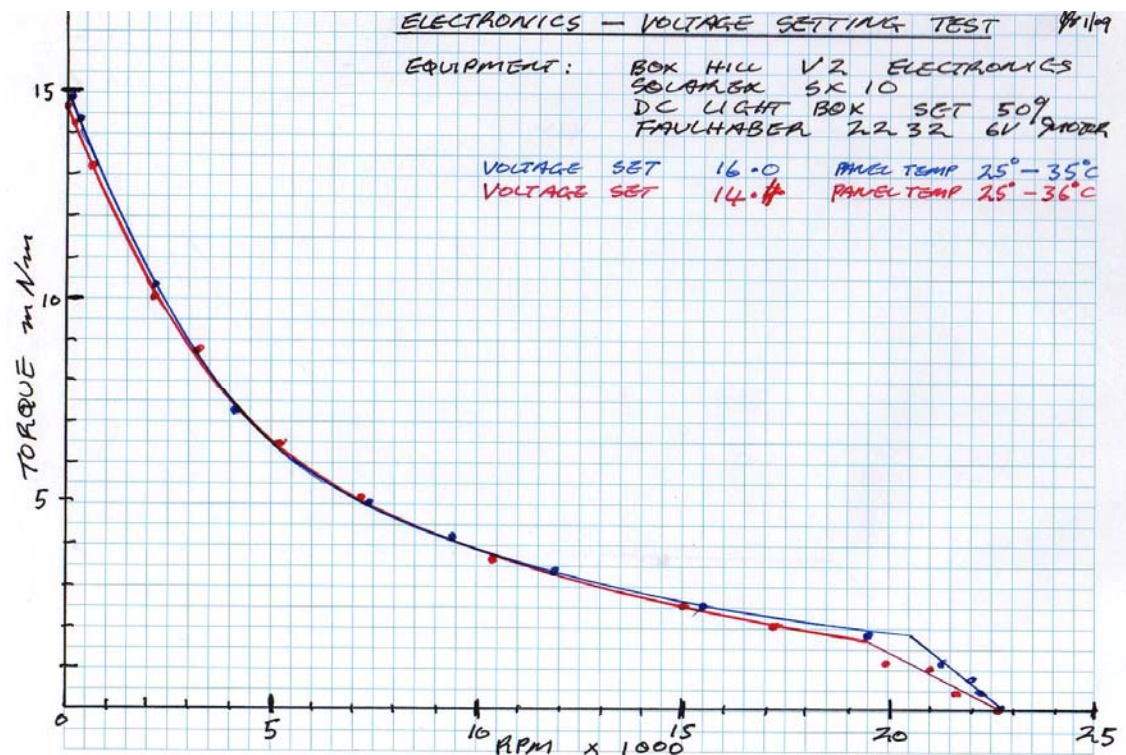 ELECTRONICS — VOLTAGE SETTING TEST
EQUIPMENT: BOX HILL V2 ELECTRONICS
SOLAREX SX 10
DC LIGHT BOX SET 50%
FAULHABER 2232 6V MOTOR
VOLTAGE SET 16.0 PANEL TEMP 25° - 35°C
VOLTAGE SET 14. PANEL TEMP 25° - 36°C
15
10
5
TORQUE mNm
0 5 10 15 20 25
RPM x 1000